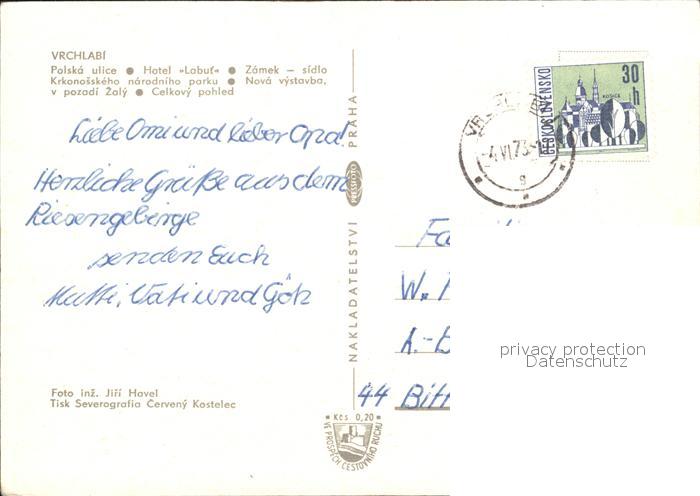 VRCHLABÍ
Polská ulice ● Hotel »Labuť« ● Zámek – sídlo
Krkonošského národního parku ● Nová výstavba,
v pozadí Žalý ● Celkový pohled
Liebe Omi und lieber Opa!
Herzliche Grüße aus dem
Riesengebirge
senden Euch
Mutti, Vati und Götz
Foto inž. Jiří Havel
Tisk Severografia Červený Kostelec
NAKLADATELSTVÍ PRESSFOTO PRAHA
Kčs 0,20
VE PROSPĚCH CESTOVNÍHO RUCHU
4.VI.73
g
ČESKOSLOVENSKO
30 h
KOŠICE
Fa
W.
44 Bitt
privacy protection
Datenschutz